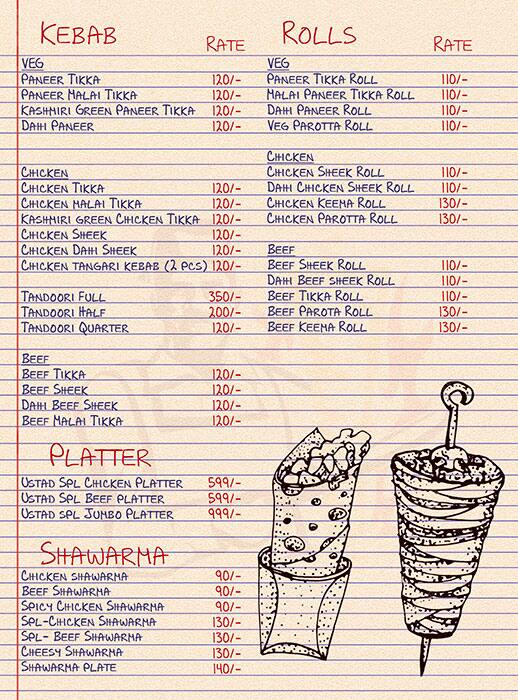 KEBAB
RATE
VEG
PANEER TIKKA 120/-
PANEER MALAI TIKKA 120/-
KASHMIRI GREEN PANEER TIKKA 120/-
DAHI PANEER 120/-
CHICKEN
CHICKEN TIKKA 120/-
CHICKEN MALAI TIKKA 120/-
KASHMIRI GREEN CHICKEN TIKKA 120/-
CHICKEN SHEEK 120/-
CHICKEN DAHI SHEEK 120/-
CHICKEN TANGARI KEBAB (2 PCS) 120/-
TANDOORI FULL 350/-
TANDOORI HALF 200/-
TANDOORI QUARTER 120/-
BEEF
BEEF TIKKA 120/-
BEEF SHEEK 120/-
DAHI BEEF SHEEK 120/-
BEEF MALAI TIKKA 120/-
PLATTER
USTAD SPL CHICKEN PLATTER 599/-
USTAD SPL BEEF PLATTER 599/-
USTAD SPL JUMBO PLATTER 999/-
SHAWARMA
CHICKEN SHAWARMA 90/-
BEEF SHAWARMA 90/-
SPICY CHICKEN SHAWARMA 90/-
SPL-CHICKEN SHAWARMA 130/-
SPL- BEEF SHAWARMA 130/-
CHEESY SHAWARMA 130/-
SHAWARMA PLATE 140/-
ROLLS
RATE
VEG
PANEER TIKKA ROLL 110/-
MALAI PANEER TIKKA ROLL 110/-
DAHI PANEER ROLL 110/-
VEG PAROTTA ROLL 110/-
CHICKEN
CHICKEN SHEEK ROLL 110/-
DAHI CHICKEN SHEEK ROLL 110/-
CHICKEN KEEMA ROLL 130/-
CHICKEN PAROTTA ROLL 130/-
BEEF
BEEF SHEEK ROLL 110/-
DAHI BEEF SHEEK ROLL 110/-
BEEF TIKKA ROLL 110/-
BEEF PAROTA ROLL 130/-
BEEF KEEMA ROLL 130/-